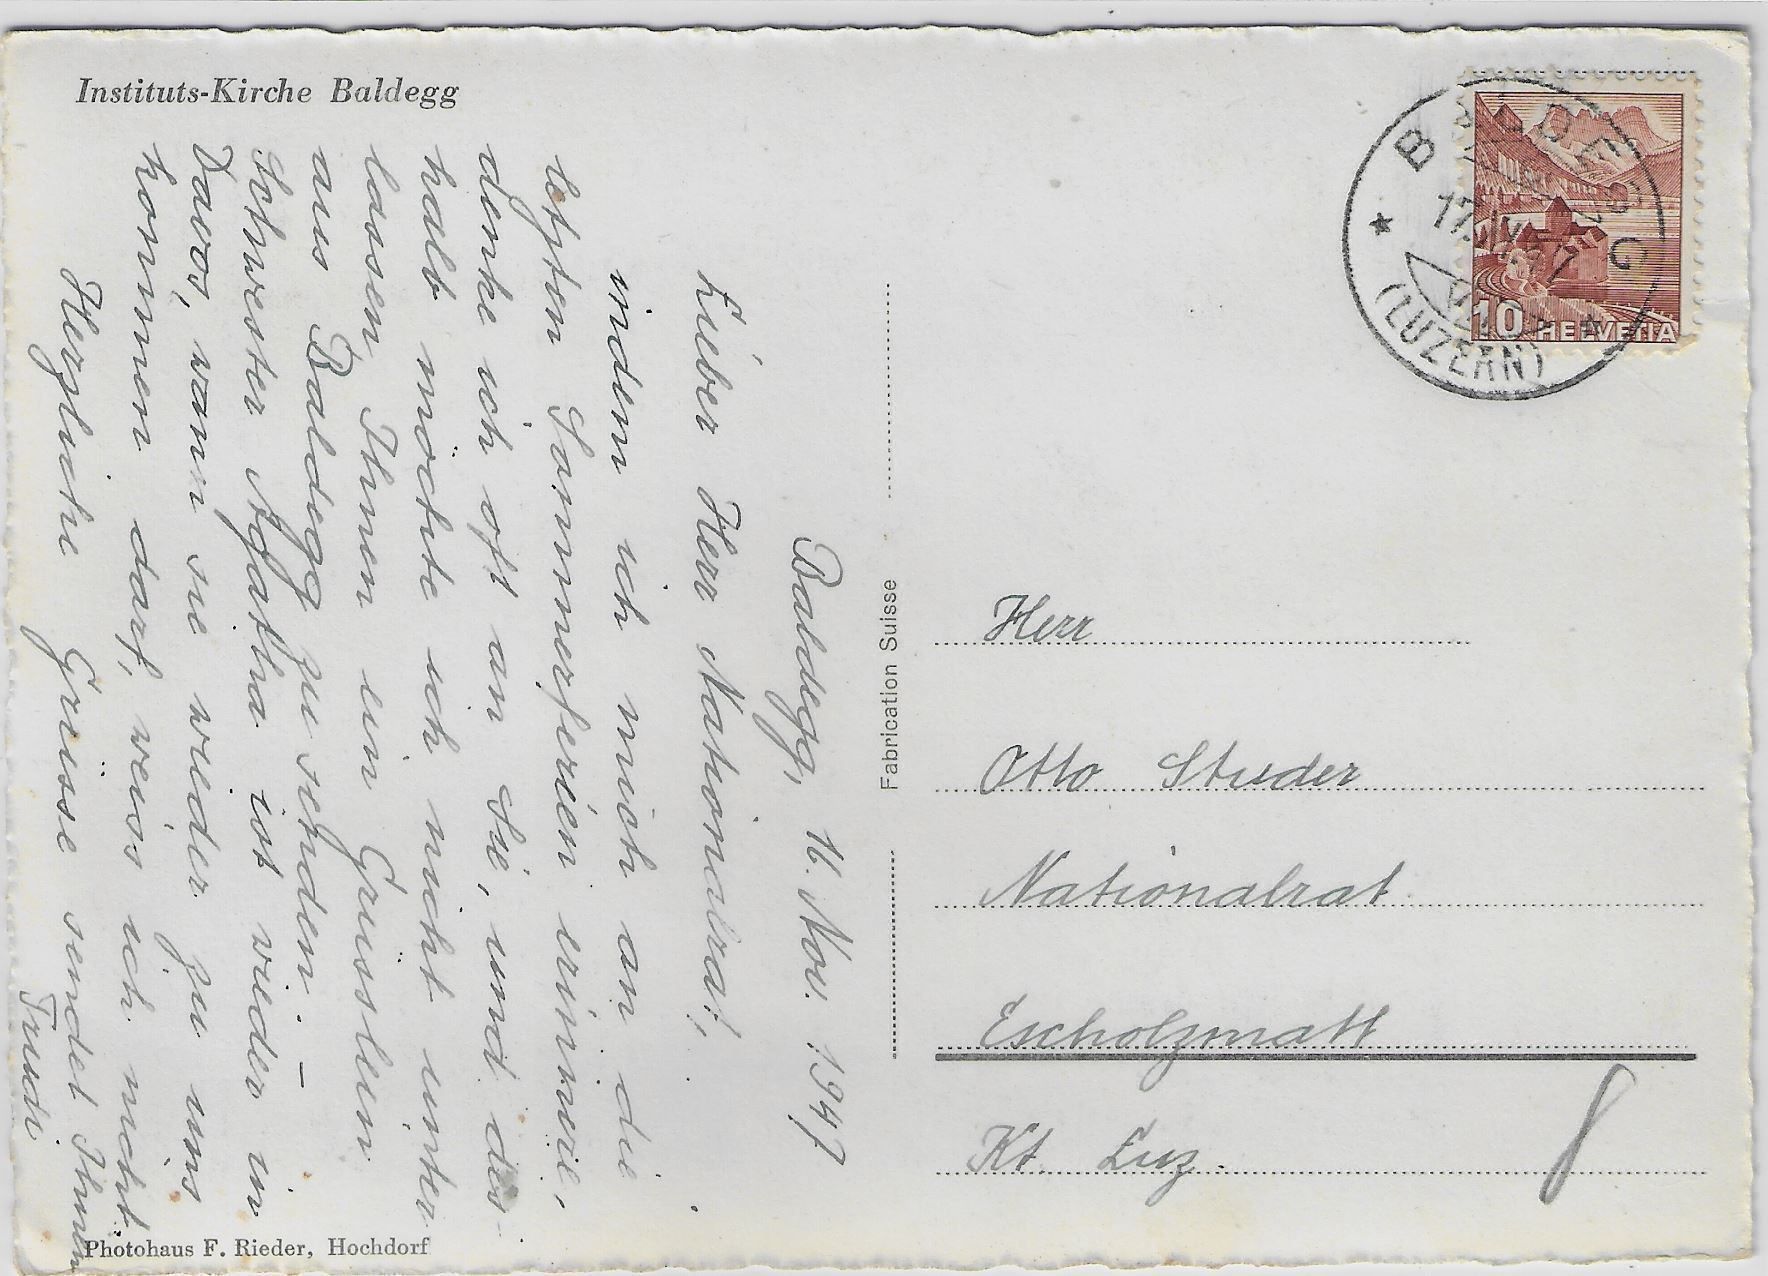 Instituts-Kirche Baldegg
Baldegg, 16. Nov. 1947
Lieber Herr Nationalrat,
indem ich mich an die
letzten Sommerferien erinnere,
denke ich oft an Sie, und des-
halb möchte ich nicht unter
lassen Ihnen ein Grüsslein
aus Baldegg zu senden. –
Schwester Agatha ist wieder in
Davos, wann sie wieder zu uns
kommen darf, weiss ich nicht.
Herzliche Grüsse sendet Ihnen
Trudi
Photohaus F. Rieder, Hochdorf
Fabrication Suisse
BALDEGG
(LUZERN)
10 HELVETIA
Herr
Otto Studer
Nationalrat
Escholzmatt
Kt. Luz.